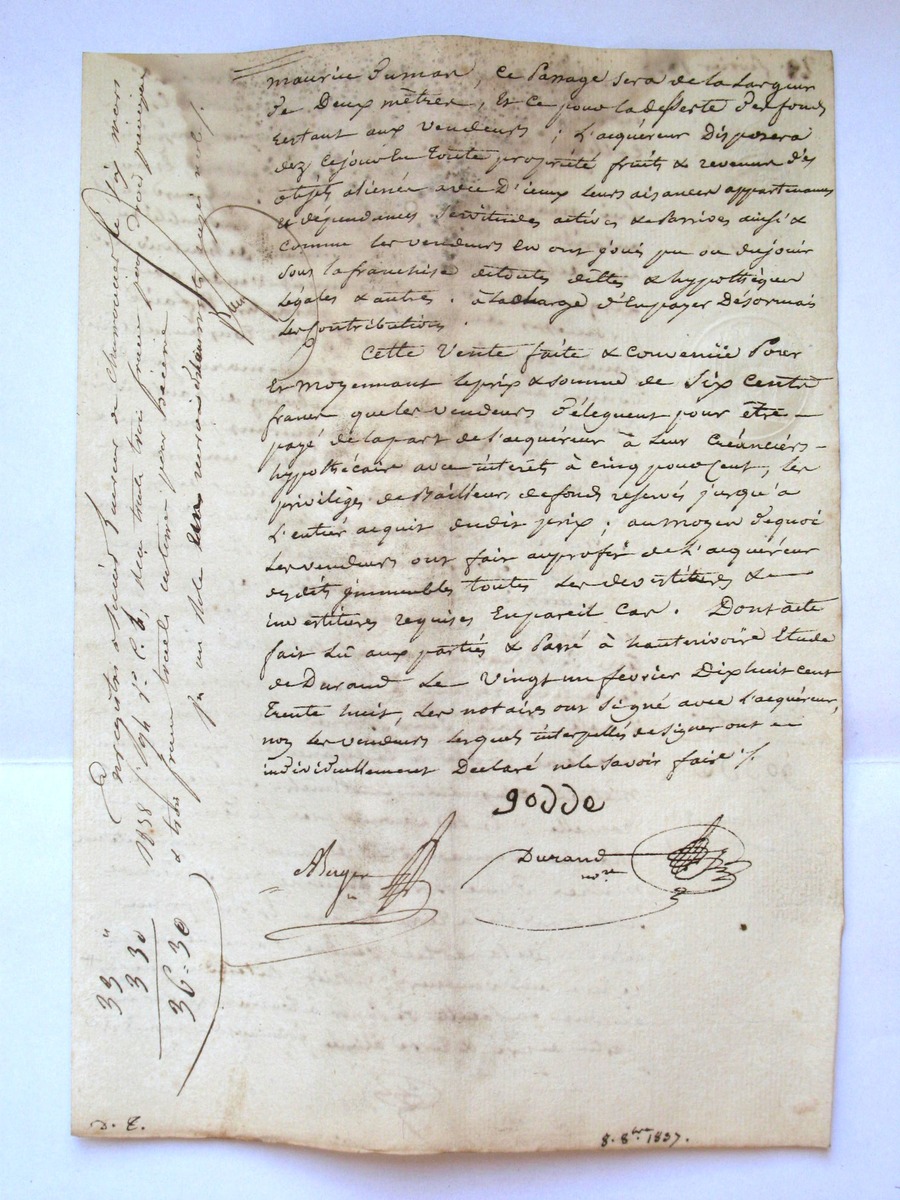 maurice Dumas, Ce Passage Sera de la Largeur
De Deux mètres, Et ce pour la desserte Des fonds
restant aux Vendeurs ; L'acquéreur Disposera
dez Cejourd'hui toute propriété fruits & revenus Des
objets aliénés avec D'iceux leurs aisances appartenances
& dépendances Servitudes actives & passives ainsi &
comme les vendeurs en ont joui pu ou du jouir
Sous la franchise de toutes dettes & hypothèques
légales & autres . à la charge d'En payer Désormais
les Contributions .
Cette Vente faite & Convenüe Pour
Et Moyennant le prix & somme de Six Cents
francs que les vendeurs Délèguent pour être —
payé de la part de l'acquéreur à Leur Créanciers —
hypothécaire avec intérêt à cinq pour Cent, les
privilèges de Bailleurs de fonds réservés jusqu'à
L'entier acquit dudit prix ; au moyen De quoi
Les vendeurs ont fait au profit de L'acquéreur
desdits immeubles toutes Les devestitures & —
investitures requises En pareil Cas . Dont acte
fait Lû aux parties & Passé à hauterivoire Etude
de Durand Le Vingt un février Dix huit cent
trente huit, Les notaires ont Signé avec L'acquéreur,
non les vendeurs lesquels interpellés de signer ont —
individuellement Declaré ne le Savoir faire ./.
godde
Durand
nore
Enregistré
1838 f° 94 r° C. 6, reçu trente trois francs pour
& trois francs trente centimes pour dixième
33 "
3 30
36 - 30
D. E.
8. 8bre 1837.